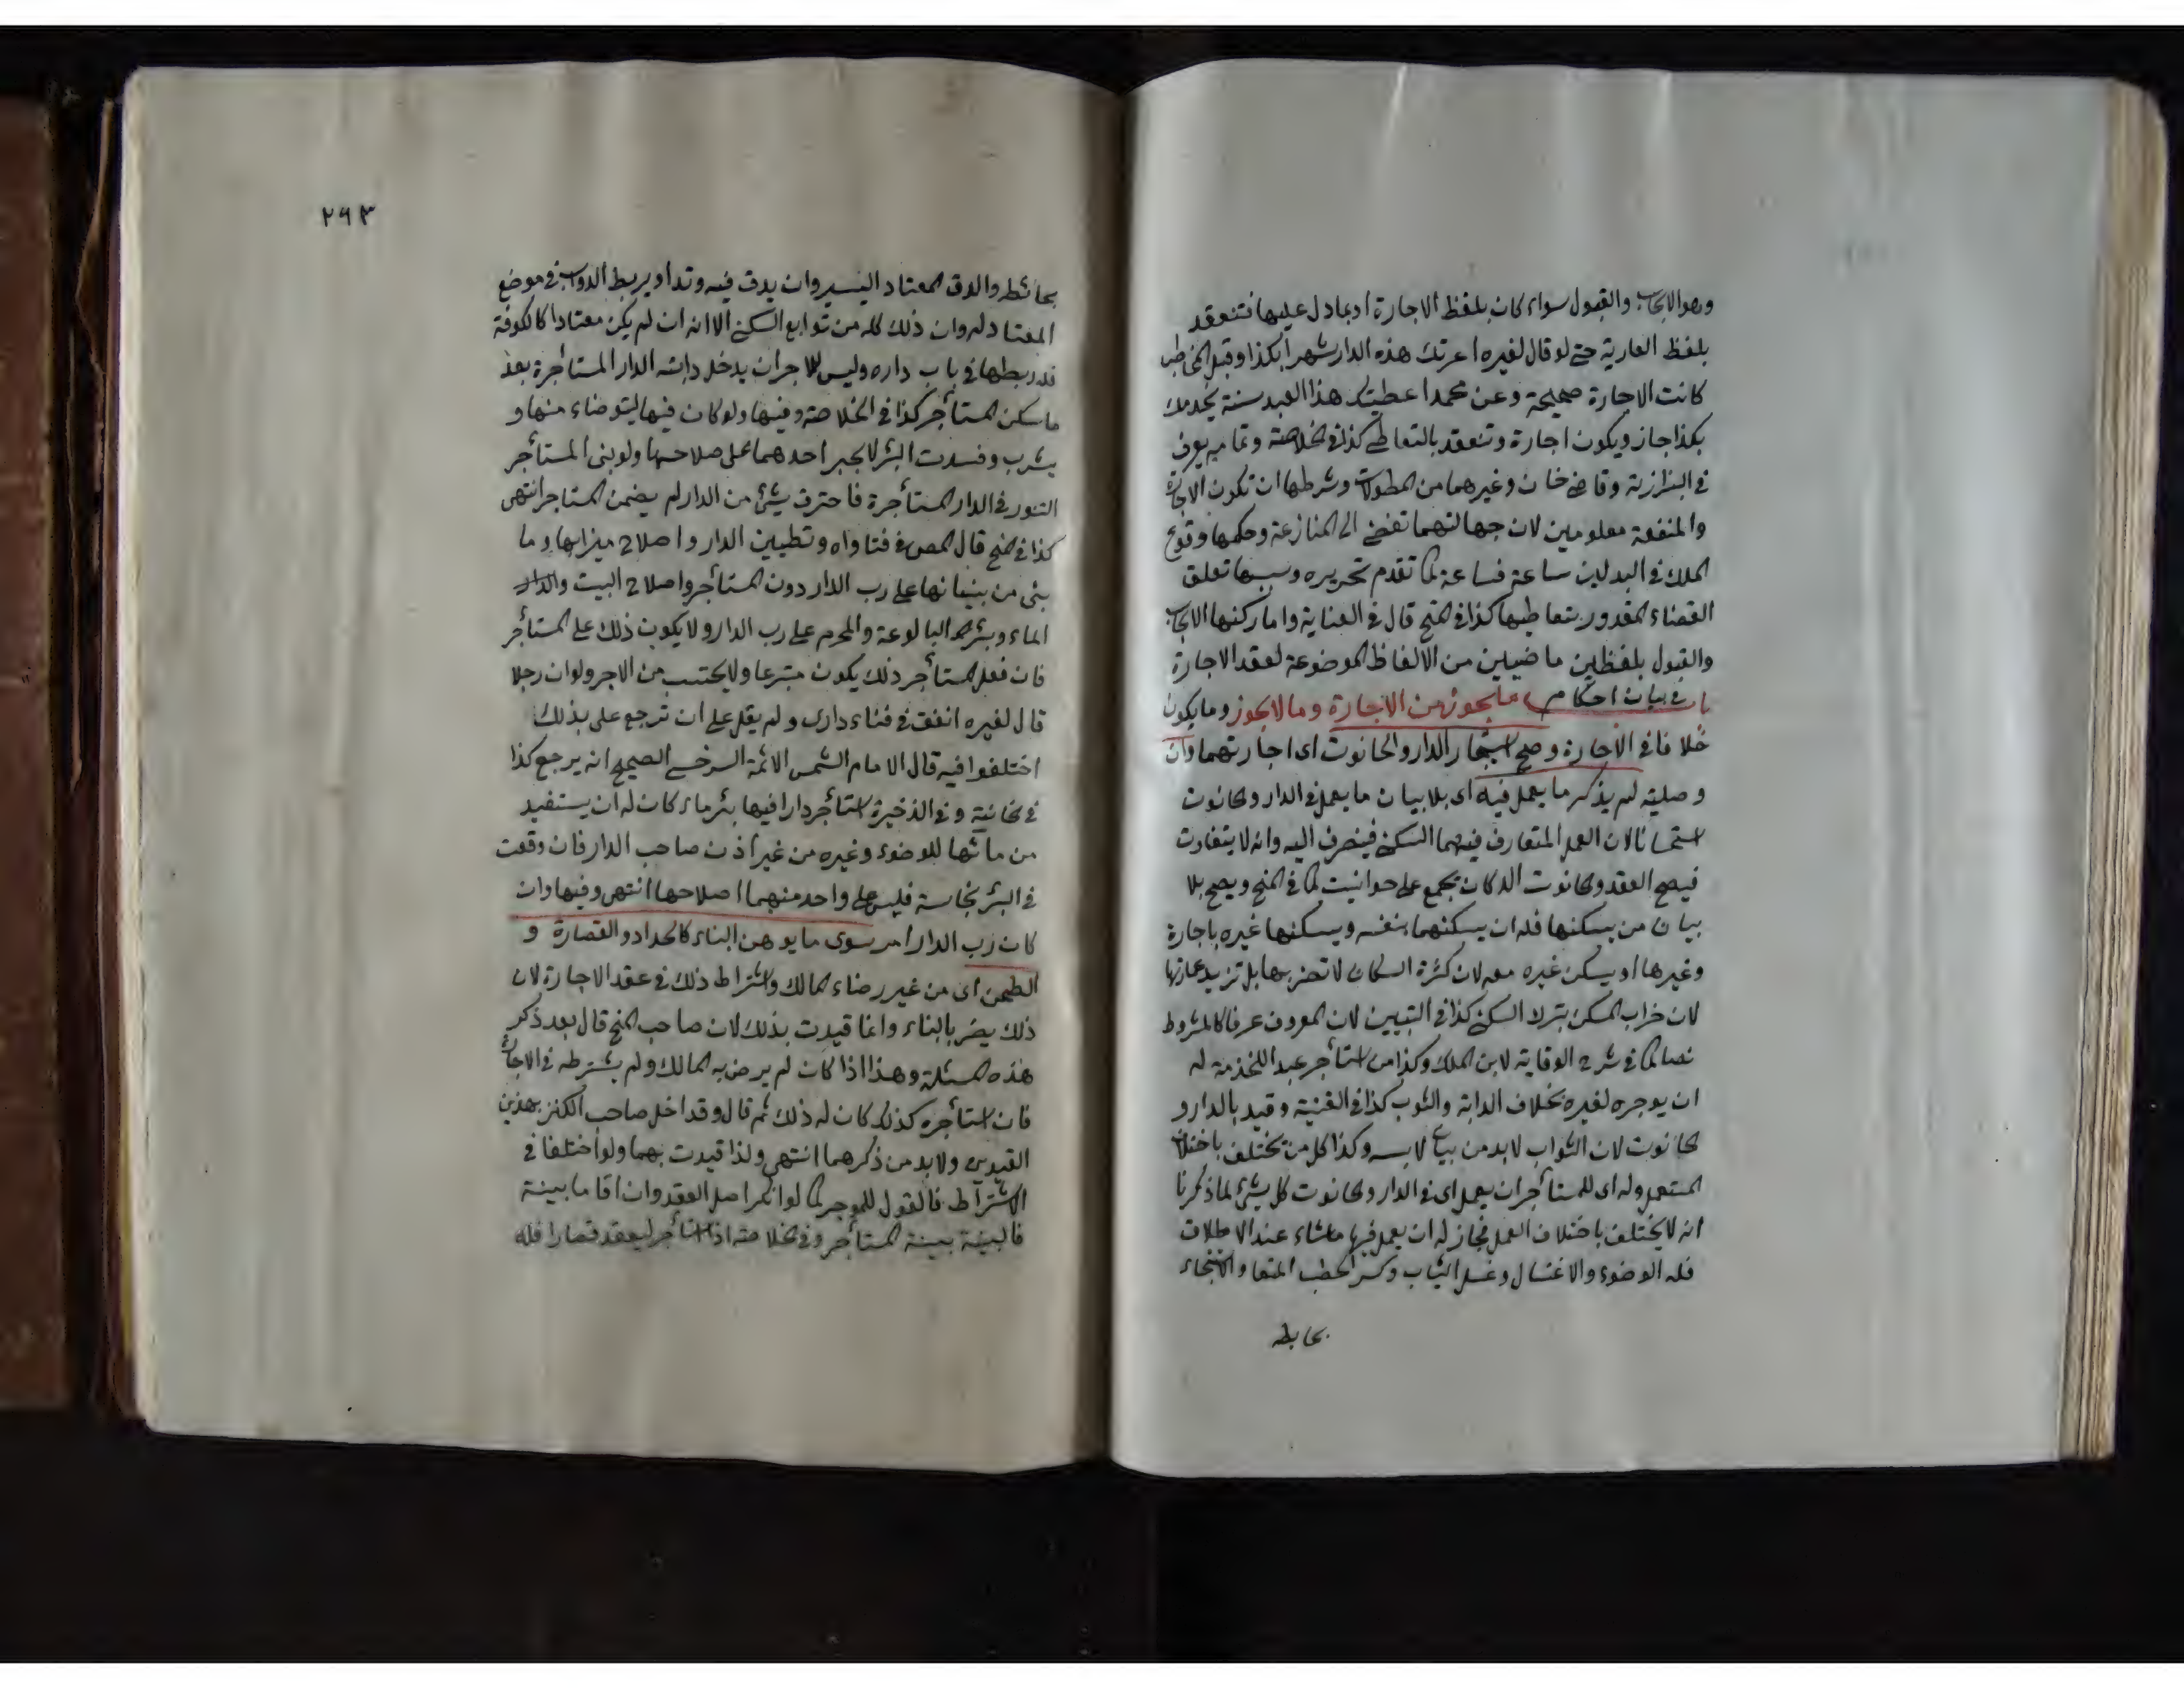 وهو الايجاب والقبول سواء كان بلفظ الاجارة او بما دل عليها فتنعقد
بلفظ العارية حتى لو قال لغيره اعرتك هذه الدار شهرا بكذا وقبل المخاطب
كانت الاجارة صحيحة وعن محمد اعطيتك هذا العبد سنة يخدمك
بكذا جاز ويكون اجارة وتنعقد بالتعاطي كذا في الخلاصة وتمامه يعرف
في البزازية وقاضي خان وغيرهما من المطولات وشرطها ان تكون الاجارة
والمنفعة معلومين لان جهالتهما تفضي الى المنازعة وحكمها وقوع
الملك في البدلين ساعة فساعة كما تقدم تحريره وسببها تعلق
القضاء المقدور بتعاطيها كذا في المنح قال في العناية واما ركنها الايجاب
والقبول بلفظين ماضيين من الالفاظ الموضوعة لعقد الاجارة
باب في بيان احكام ما يجوز من الاجارة وما لا يجوز وما يكون
خلافا في الاجارة وصح استيجار الدار والحانوت اى اجارتهما وان
وصلية لم يذكر ما يعمل فيه اى بلا بيان ما يعمل في الدار والحانوت
استحسانا لان العمل المتعارف فيهما السكنى فينصرف اليه وانه لا يتفاوت
فيصح العقد والحانوت الدكان يجمع على حوانيت كما في المنح ويصح بلا
بيان من يسكنها فله ان يسكنهما بنفسه ويسكنها غيره باجارة
وغيرها او يسكن غيره معه لان كثرة السكان لا تضر بها بل تزيد عمارتها
لان خراب المسكن بترك السكنى كذا في التبيين لان المعروف عرفا كالمشروط
نصا كما في شرح الوقاية لابن الملك وكذا من استأجر عبدا للخدمة له
ان يوجره لغيره بخلاف الدابة والثوب كذا في القنية وقيد بالدار و
الحانوت لان الثواب لا بد من بيان لابسه وكذا كل من يختلف باختلاف
المستعمل وله اى للمستأجر ان يعمل اى في الدار والحانوت كل شئ لما ذكرنا
انه لا يختلف باختلاف العمل فجاز له ان يعمل فيها ماشاء عند الاطلاق
فله الوضوء والاغتسال وغسل الثياب وكسر الحطب المتعا والاستنجاء
بحايطه
٢٩٣
بحائطه والدق المعتاد اليسير وان يدق فيه وتدا ويربط الدواب في موضع
المعتاد له وان ذلك كله من توابع السكنى الا انه ان لم يكن معتادا كالكوفة
فله ربطها في باب داره وليس للاجر ان يدخل دابته الدار المستاجرة بعد
ما سكن المستأجر كذا في الخلاصة وفيها ولو كان فيها ليتوضاء منها و
يشرب وفسدت البئر لا يجبر احدهما على صلاحها ولو بنى المستأجر
التنور في الدار المستأجرة فاحترق شئ من الدار لم يضمن المستاجر انتهى
كذا في المنح قال المص في فتاواه وتطيين الدار واصلاح ميزابها وما
بنى من بنيانها على رب الدار دون المستأجر واصلاح البيت والدار
الماء وبئر البالوعة والمخرج على رب الدار ولا يكون ذلك على المستأجر
فان فعل المستأجر ذلك يكون متبرعا ولا يحتسب من الاجر ولو ان رجلا
قال لغيره انفق في فناء دارى ولم يقل على ان ترجع على بذلك
اختلفوا فيه قال الامام الشمس الائمة السرخسى الصحيح انه يرجع كذا
في الخانية وفي الذخيرة استأجر دارا فيها بئر ماء كان له ان يستفيد
من مائها للوضوء وغيره من غير اذن صاحب الدار فان وقعت
في البئر نجاسة فليس على واحد منهما اصلاحها انتهى وفيها وان
كان رب الدار امر سوى ما يوهن البناء كالحداد والقصارة و
الطحن اى من غير رضاء المالك واشتراط ذلك في عقد الاجارة لان
ذلك يضر بالبناء وانما قيدت بذلك لان صاحب المنح قال بعد ذكر
هذه المسئلة وهذا اذا كان لم يرض به المالك ولم يشترطه في الاجارة
فان استأجره كذلك كان له ذلك ثم قال وقد اخل صاحب الكنز بهذين
القيدين ولا بد من ذكرهما انتهى ولذا قيدت بهما ولو اختلفا في
الاشتراط فالقول للموجر كما لو انكر اصل العقد وان اقاما بينة
فالبينة بينة المستأجر وفي الخلاصة اذا استأجر ليقعد قصارا فله